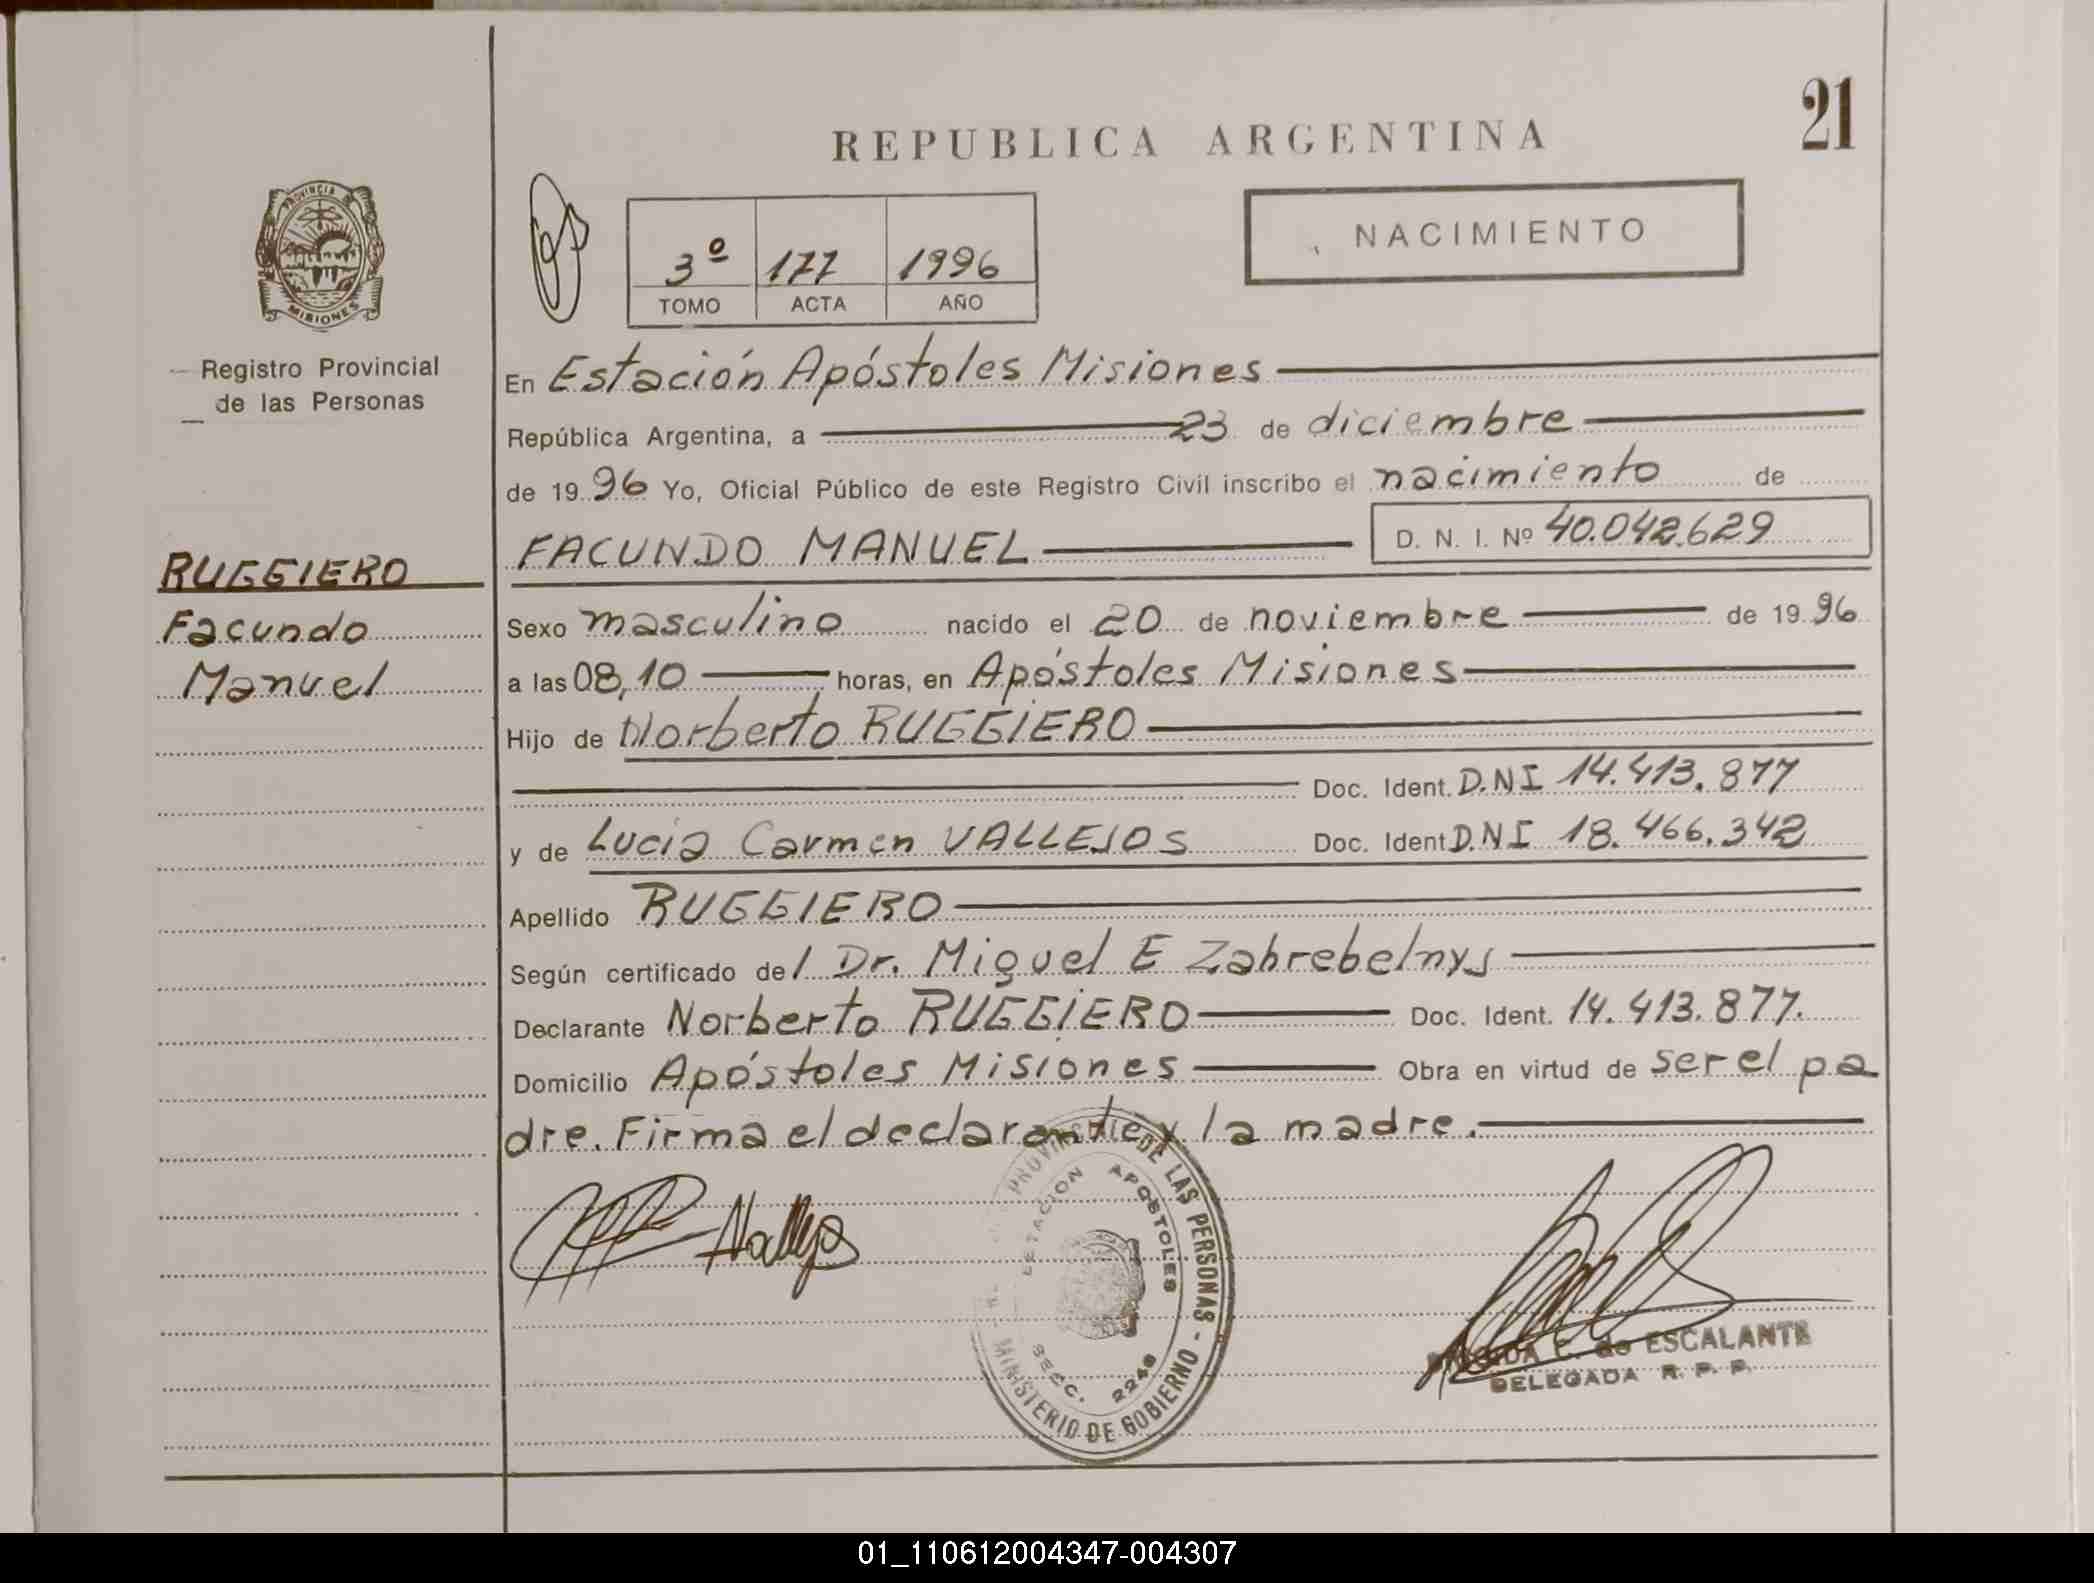 21
REPUBLICA ARGENTINA
NACIMIENTO
3º 177 1996
TOMO ACTA AÑO
PROVINCIA DE
MISIONES
Registro Provincial
de las Personas
RUGGIERO
Facundo
Manuel
En Estación Apóstoles Misiones
República Argentina, a 23 de diciembre
de 1996 Yo, Oficial Público de este Registro Civil inscribo el nacimiento de
FACUNDO MANUEL D. N. I. Nº 40.042.629
Sexo masculino nacido el 20 de noviembre de 1996
a las 08,10 horas, en Apóstoles Misiones
Hijo de Norberto RUGGIERO
Doc. Ident. D.N.I 14.413.877
y de Lucia Carmen VALLEJOS Doc. Ident D.N.I 18.466.342
Apellido RUGGIERO
Según certificado del Dr. Miguel E Zabrebelnys
Declarante Norberto RUGGIERO Doc. Ident. 14.413.877.
Domicilio Apóstoles Misiones Obra en virtud de ser el pa
dre. Firma el declarante y la madre.
DE LAS PERSONAS - MINISTERIO DE GOBIERNO
ESTACION APOSTOLES
SECC. 2246
C. de ESCALANTE
DELEGADA R. P. P.
01_110612004347-004307